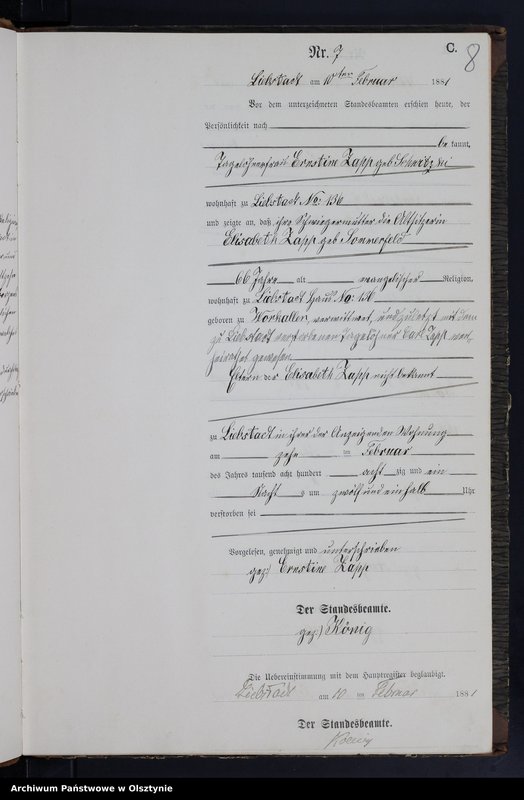 C.
8
Nr. 7
Liebstadt am 10ten Februar 1881
Vor dem unterzeichneten Standesbeamten erschien heute, der
Persönlichkeit nach
be kannt,
Tagelöhnerfrau Ernestine Zapp geb
wohnhaft zu Liebstadt No: 136
und zeigte an, daß ihre Schwiegermutter die Altsitzerin
Elisabeth Zapp geb Sommerfeld
66 Jahre alt evangelischer Religion,
wohnhaft zu Liebstadt Haus No: 136
geboren zu Workallen, verwittwet, und zuletzt mit dem
zu Liebstadt verstorbenen Tagelöhner Carl Zapp ver-
heirathet gewesen
Eltern der Elisabeth Zapp nicht bekannt
zu Liebstadt in ihrer der Anzeigenden Wohnung
am zehn ten Februar
des Jahres tausend acht hundert acht zig und ein
Nacht s um zwölf und einhalb Uhr
verstorben sei
Vorgelesen, genehmigt und unterschrieben
gez:) Ernestine Zapp
Der Standesbeamte.
gez:) König
Die Uebereinstimmung mit dem Hauptregister beglaubigt.
Liebstadt am 10 ten Februar 1881
Der Standesbeamte.
Koenig
Archiwum Państwowe w Olsztynie